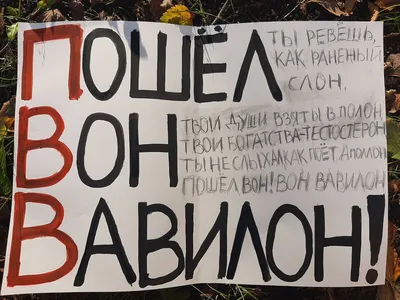 ПОШЁЛ
ВОН
ВАВИЛОН!
ТЫ РЕВЁШЬ,
КАК РАНЕНЫЙ
СЛОН.
ТВОИ ДУШИ ВЗЯТЫ В ПОЛОН
ТВОИ БОГАТСТВА-ТЕСТОСТЕРОН
ТЫ НЕ СЛЫХАЛ КАК ПОЁТ АПОЛЛОН
ПОШЁЛ ВОН! ВОН ВАВИЛОН